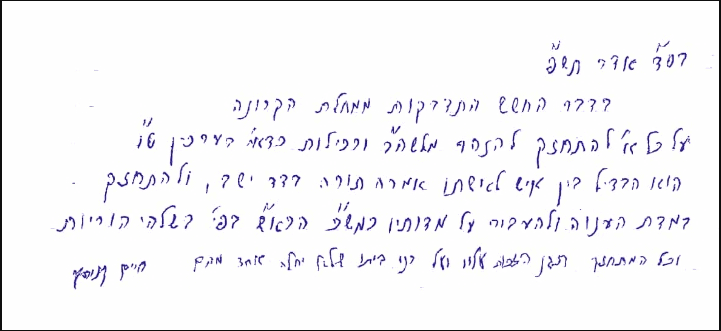 בס"ד אדר תש"פ
בדבר החשש התדבקות ממחלת הקרונה
על כל א' להתחזק להזהר מלשה"ר ורכילות כדאי' בערכין ט"ז
הוא הבדיל בין איש לאישתו אמרה תורה בדד ישב, ולהתחזק
במדת הענוה ולהעביר על מדותיו כמש"כ הרא"ש בפי' בשלהי הוריות
וכל המתחזק תגן הזכות עליו ועל בני ביתו שלא יחלה אחד מהם חיים קניבסקי